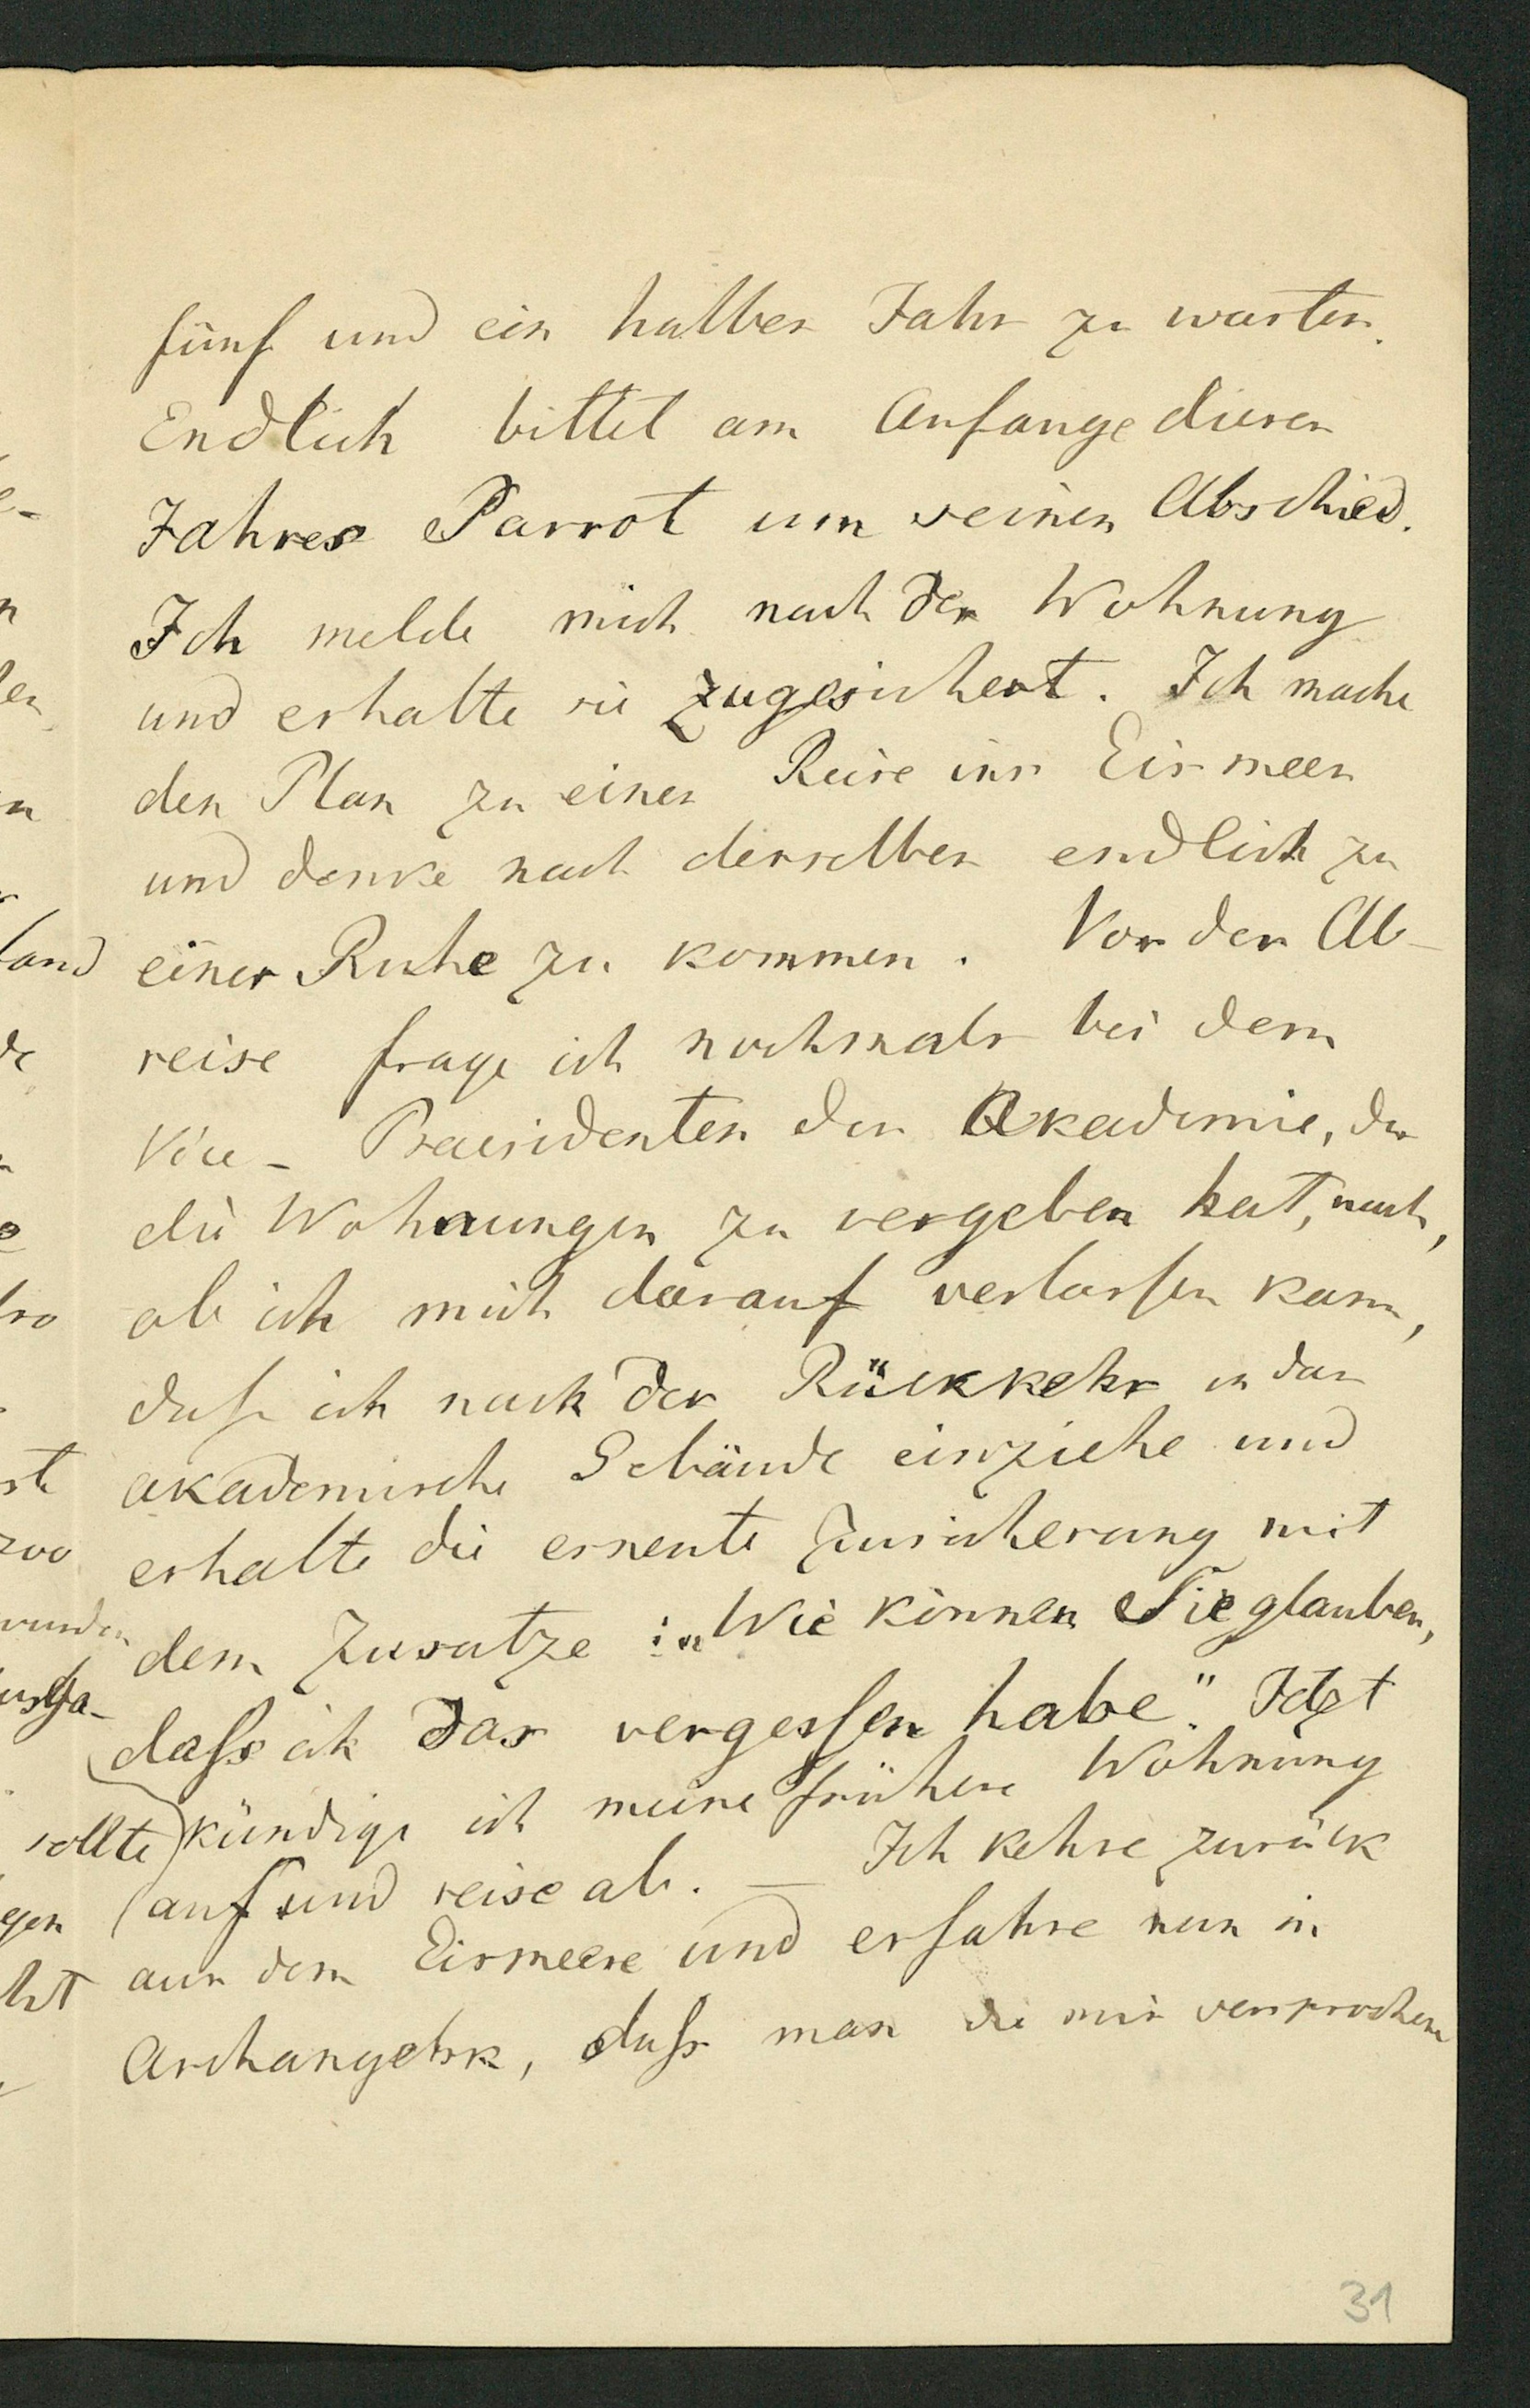 fünf und ein halbes Jahr zu warten.
Endlich bittet am Anfange dieses
Jahres Parrot um seinen Abschied.
Ich melde mich nach der Wohnung
und erhalte sie zugesichert. Ich mache
den Plan zu einer Reise ins Eismeer
und denke nach derselben endlich zu
land einer Ruhe zu kommen. Vor der Ab-
reise frage ich nochmals bei dem
Vice-Praesidenten der Akademie, der
die Wohnungen zu vergeben hat, nach,
ob ich mich darauf verlassen kann,
dass ich nach der Rückkehr in das
akademische Gebäude einziehe und
erhalte die erneute Zusicherung mit
dem Zusatze: „Wie können Sie glauben,
dass ich das vergessen habe". Jetzt
sollte) kündige ich meine frühere Wohnung
auf und reise ab. — Ich kehre zurück
aus dem Eismeere und erfahre nun in
Archangelsk, dass man die mir versprochene
31